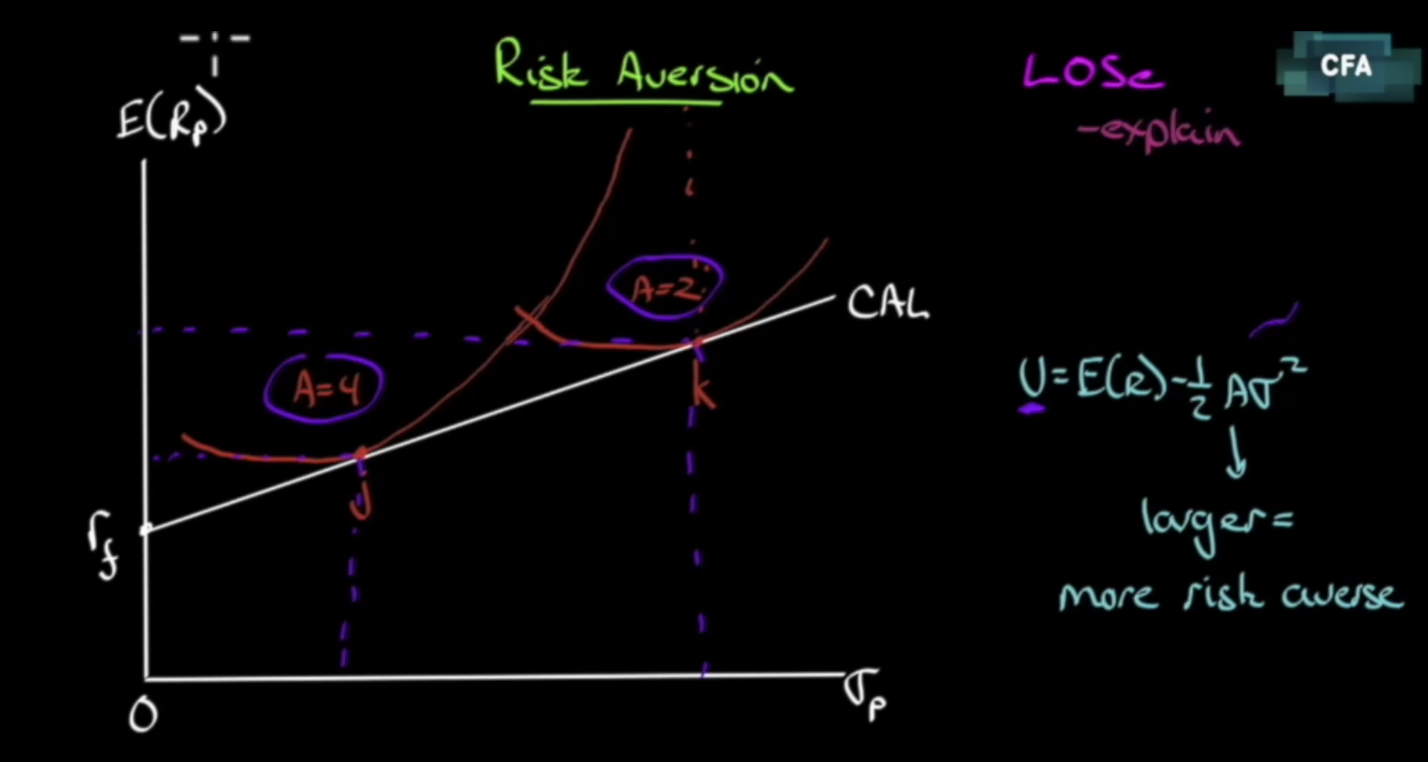 Risk Aversion
LOSe
-explain
CFA
E(Rp)
A=2
CAL
A=4
k
U=E(R)-1/2 Aσ²
j
rf
larger=
more risk averse
σp
0